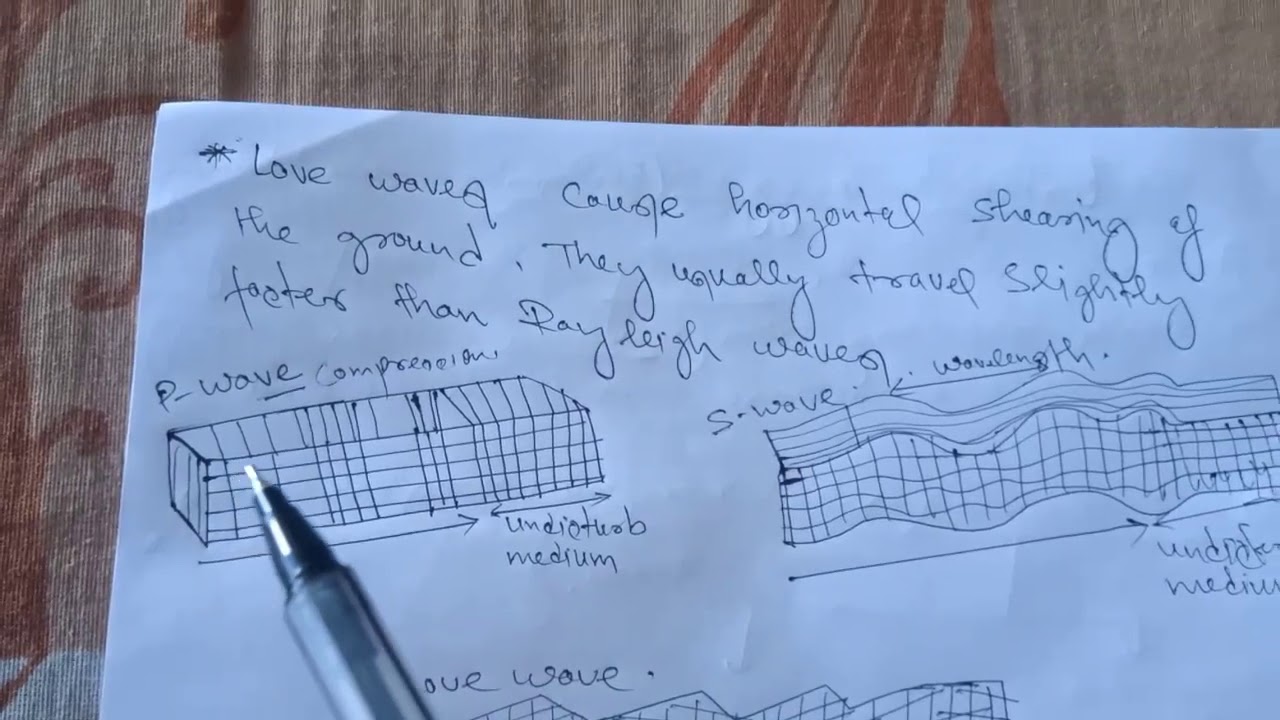 * Love waves cause horizontal shearing of
the ground. They usually travel slightly
faster than Rayleigh waves.
P-wave compression.
S-wave.
wavelength.
undisturb
medium
undistur
medium
ove wave.